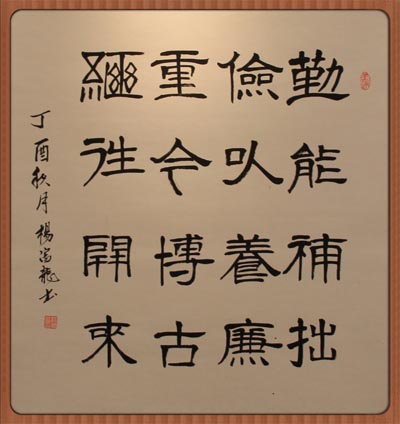 勤能補拙
儉以養廉
重今博古
繼往開來
丁酉秋月楊富龍書